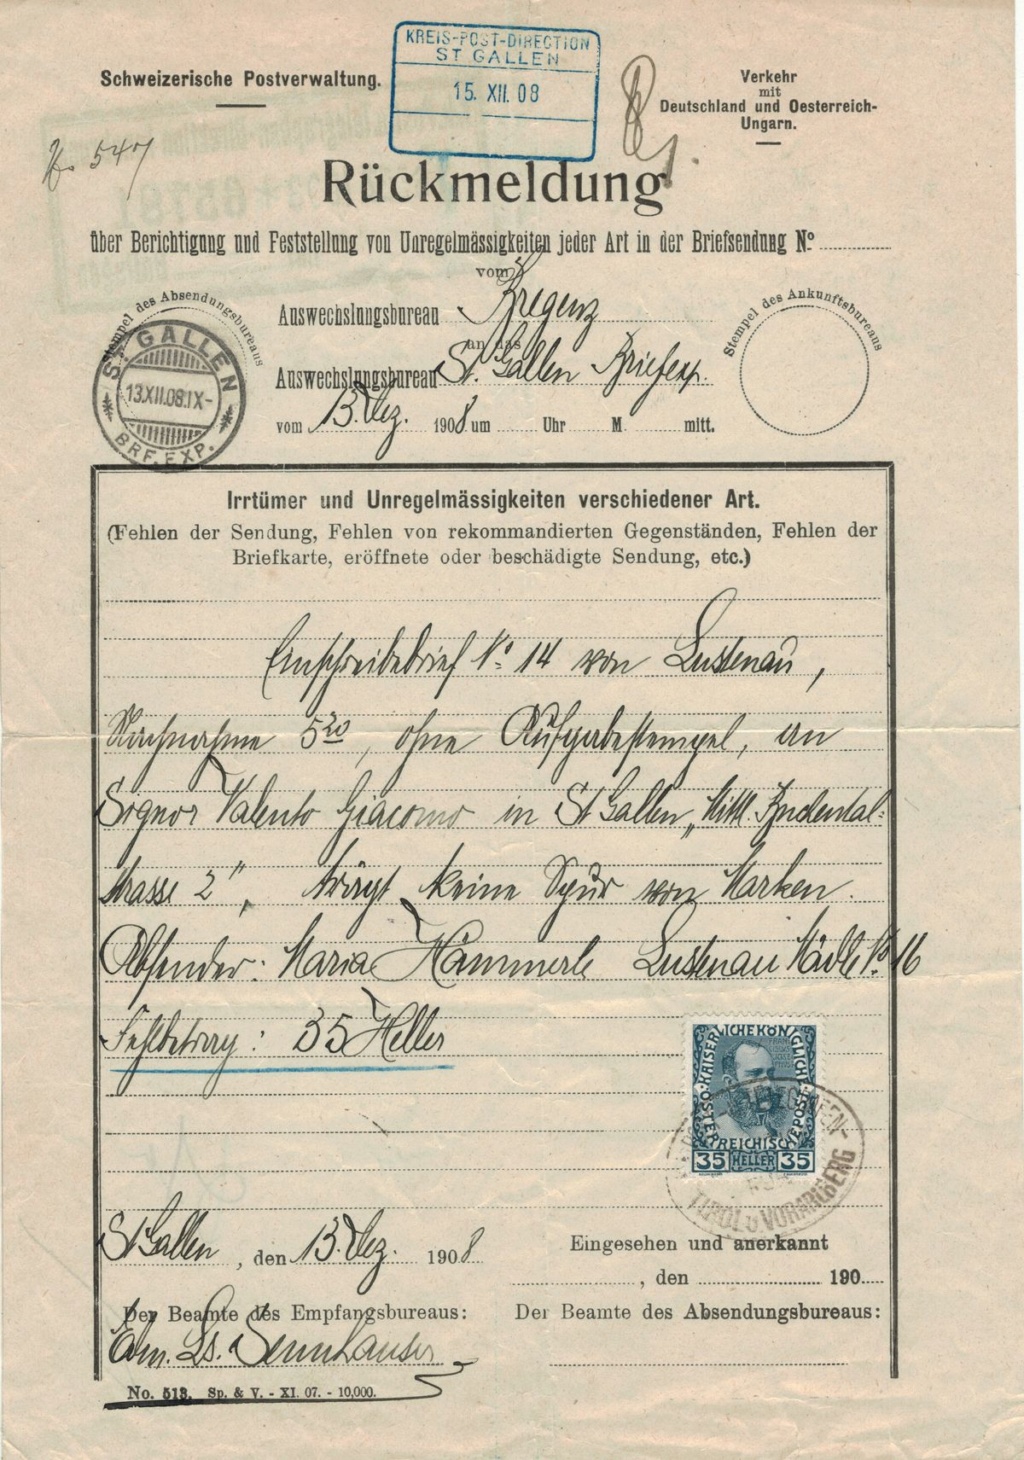 KREIS-POST-DIRECTION
ST GALLEN
15. XII. 08
Schweizerische Postverwaltung.
Verkehr
mit
Deutschland und Oesterreich-
Ungarn.
No 547
Rückmeldung
über Berichtigung und Feststellung von Unregelmässigkeiten jeder Art in der Briefsendung No
vom
Stempel des Absendungsbureaus
Auswechslungsbureau Bregenz
Stempel des Ankunftsbureaus
an das
Auswechslungsbureau St. Gallen Briefexp.
ST. GALLEN
13.XII.08.IX-
BRF. EXP.
vom 13. Dez. 1908 um Uhr M mitt.
Irrtümer und Unregelmässigkeiten verschiedener Art.
(Fehlen der Sendung, Fehlen von rekommandierten Gegenständen, Fehlen der
Briefkarte, eröffnete oder beschädigte Sendung, etc.)
Einschreibebrief No 14 von Lustenau,
Nachnahme 5.20, ohne Aufgabestempel, an
Signor Valento Giacomo in St Gallen,
strasse 2", trägt keine Spur von Marken.
Absender: Maria Hämmerle Lustenau No 16
Fehlbetrag: 35 Heller
KAISERLICHE KÖNIGLICHE
OESTERREICHISCHE POST
35 HELLER 35
TIROL u. VORARLBERG
St Gallen, den 13. Dez. 1908
Eingesehen und anerkannt
, den 190
Der Beamte des Empfangsbureaus:
Der Beamte des Absendungsbureaus:
Sennhauser
No. 513. Sp. & V. - XI. 07. - 10,000.